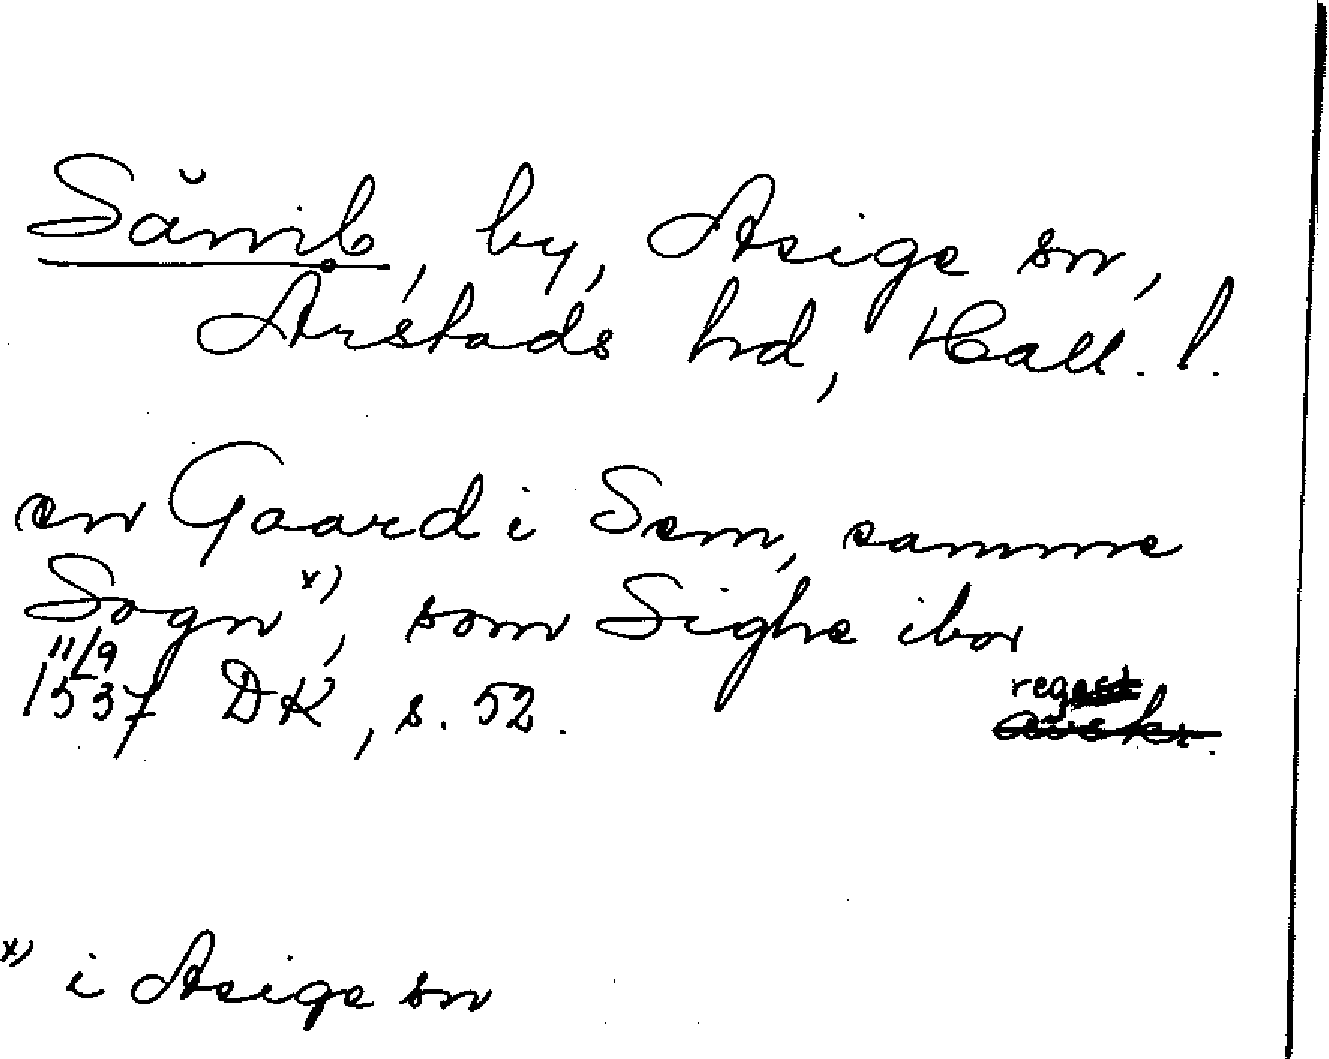 Sämb, by, Asige sn,
Årstads hd, Hall. l.
en Gaard i Sem, samme
Sogn x), som Sighe ibor
11/9
1537 DK, s. 52. reg
x) i Asige sn